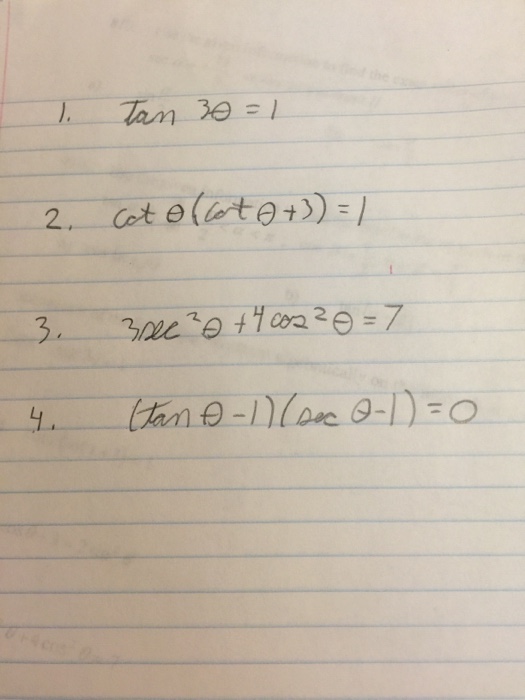 1. tan 3θ = 1
2. cot θ(cot θ+3) = 1
3. 3sec²θ + 4cos²θ = 7
4. (tan θ - 1)(sec θ - 1) = 0